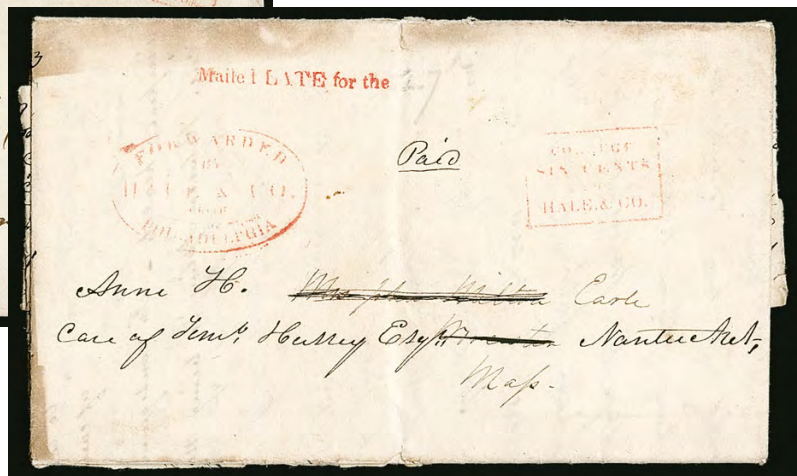 Mailed LATE for the
27th
Paid
FORWARDED
BY
HALE & CO.
FROM
PHILADELPHIA
COLLECT
SIX CENTS
FOR
HALE & CO.
Anne H. Earle
Care of Hussey Esq. Nantucket,
Mass.